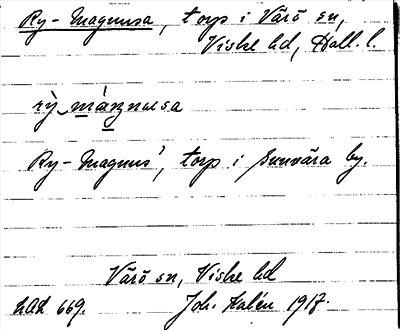 Ry-Magnusa, torp i Värö sn,
Viske hd, Hall. l.
rỳ_máŋnusa
Ry-Magnus', torp i Sunvära by.
Värö sn, Viske hd
LAL 669. Joh. Kalén 1917.